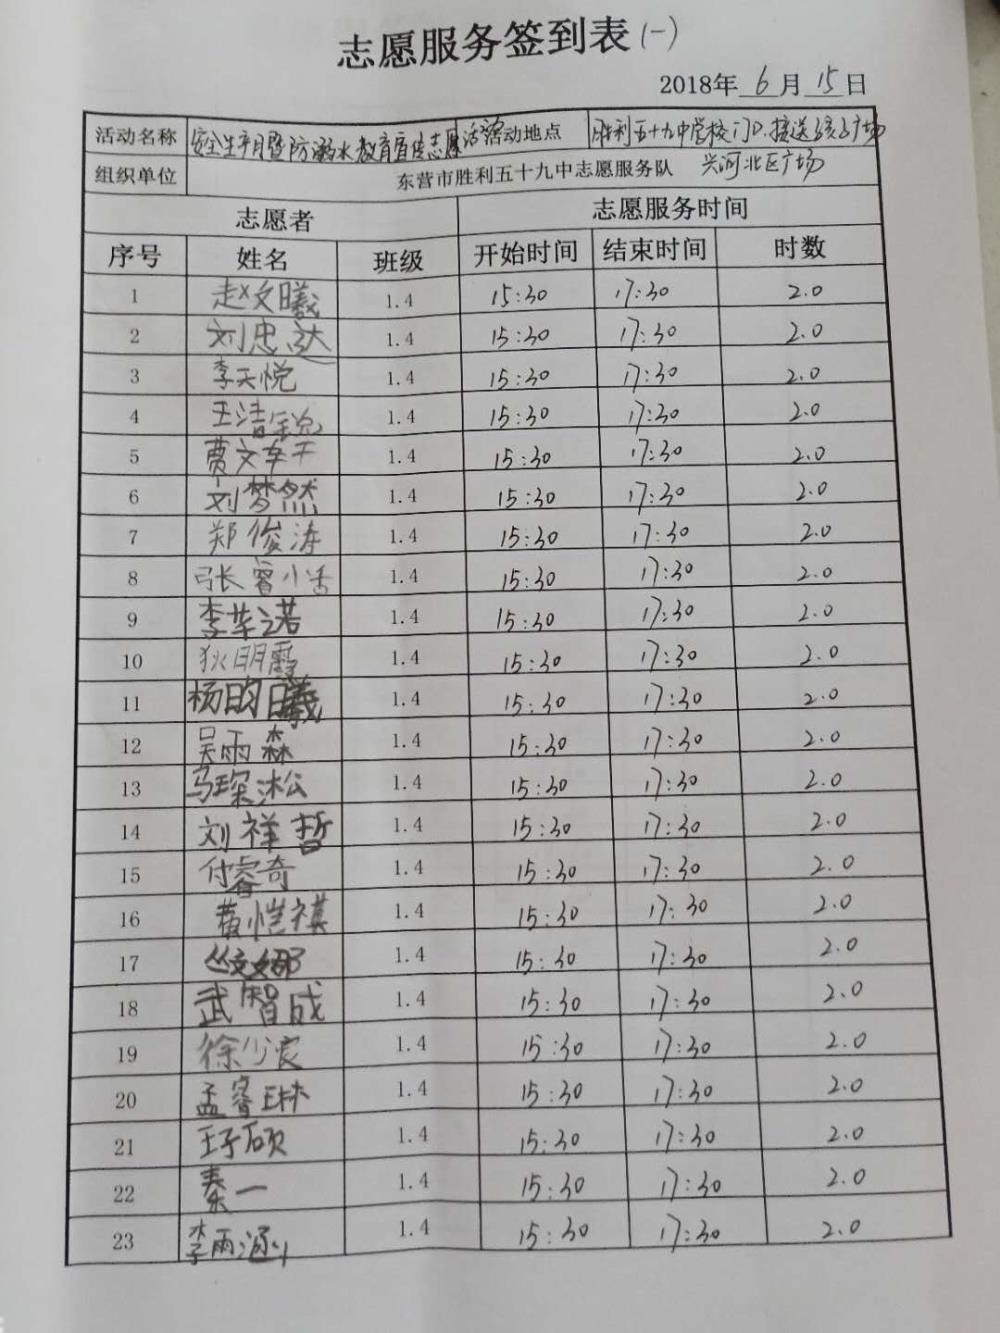 志愿服务签到表(一)
2018年 6 月 15 日
活动名称 安全生产月暨防溺水教育宣传志愿活动 活动地点 胜利五十九中学校门口、接送孩子广场
组织单位 东营市胜利五十九中志愿服务队 兴河北区广场
志愿者 志愿服务时间
序号 姓名 班级 开始时间 结束时间 时数
1 赵文曦 1.4 15:30 17:30 2.0
2 刘忠达 1.4 15:30 17:30 2.0
3 李天悦 1.4 15:30 17:30 2.0
4 王洁锐 1.4 15:30 17:30 2.0
5 贾文 1.4 15:30 17:30 2.0
6 刘梦然 1.4 15:30 17:30 2.0
7 郑俊涛 1.4 15:30 17:30 2.0
8 张睿恬 1.4 15:30 17:30 2.0
9 李芊诺 1.4 15:30 17:30 2.0
10 狄明霞 1.4 15:30 17:30 2.0
11 杨昀曦 1.4 15:30 17:30 2.0
12 吴雨森 1.4 15:30 17:30 2.0
13 马琛淞 1.4 15:30 17:30 2.0
14 刘祥哲 1.4 15:30 17:30 2.0
15 付睿奇 1.4 15:30 17:30 2.0
16 黄恺祺 1.4 15:30 17:30 2.0
17 丛文娜 1.4 15:30 17:30 2.0
18 武智成 1.4 15:30 17:30 2.0
19 徐少宸 1.4 15:30 17:30 2.0
20 孟睿琳 1.4 15:30 17:30 2.0
21 王子硕 1.4 15:30 17:30 2.0
22 秦一 1.4 15:30 17:30 2.0
23 李雨涵 1.4 15:30 17:30 2.0